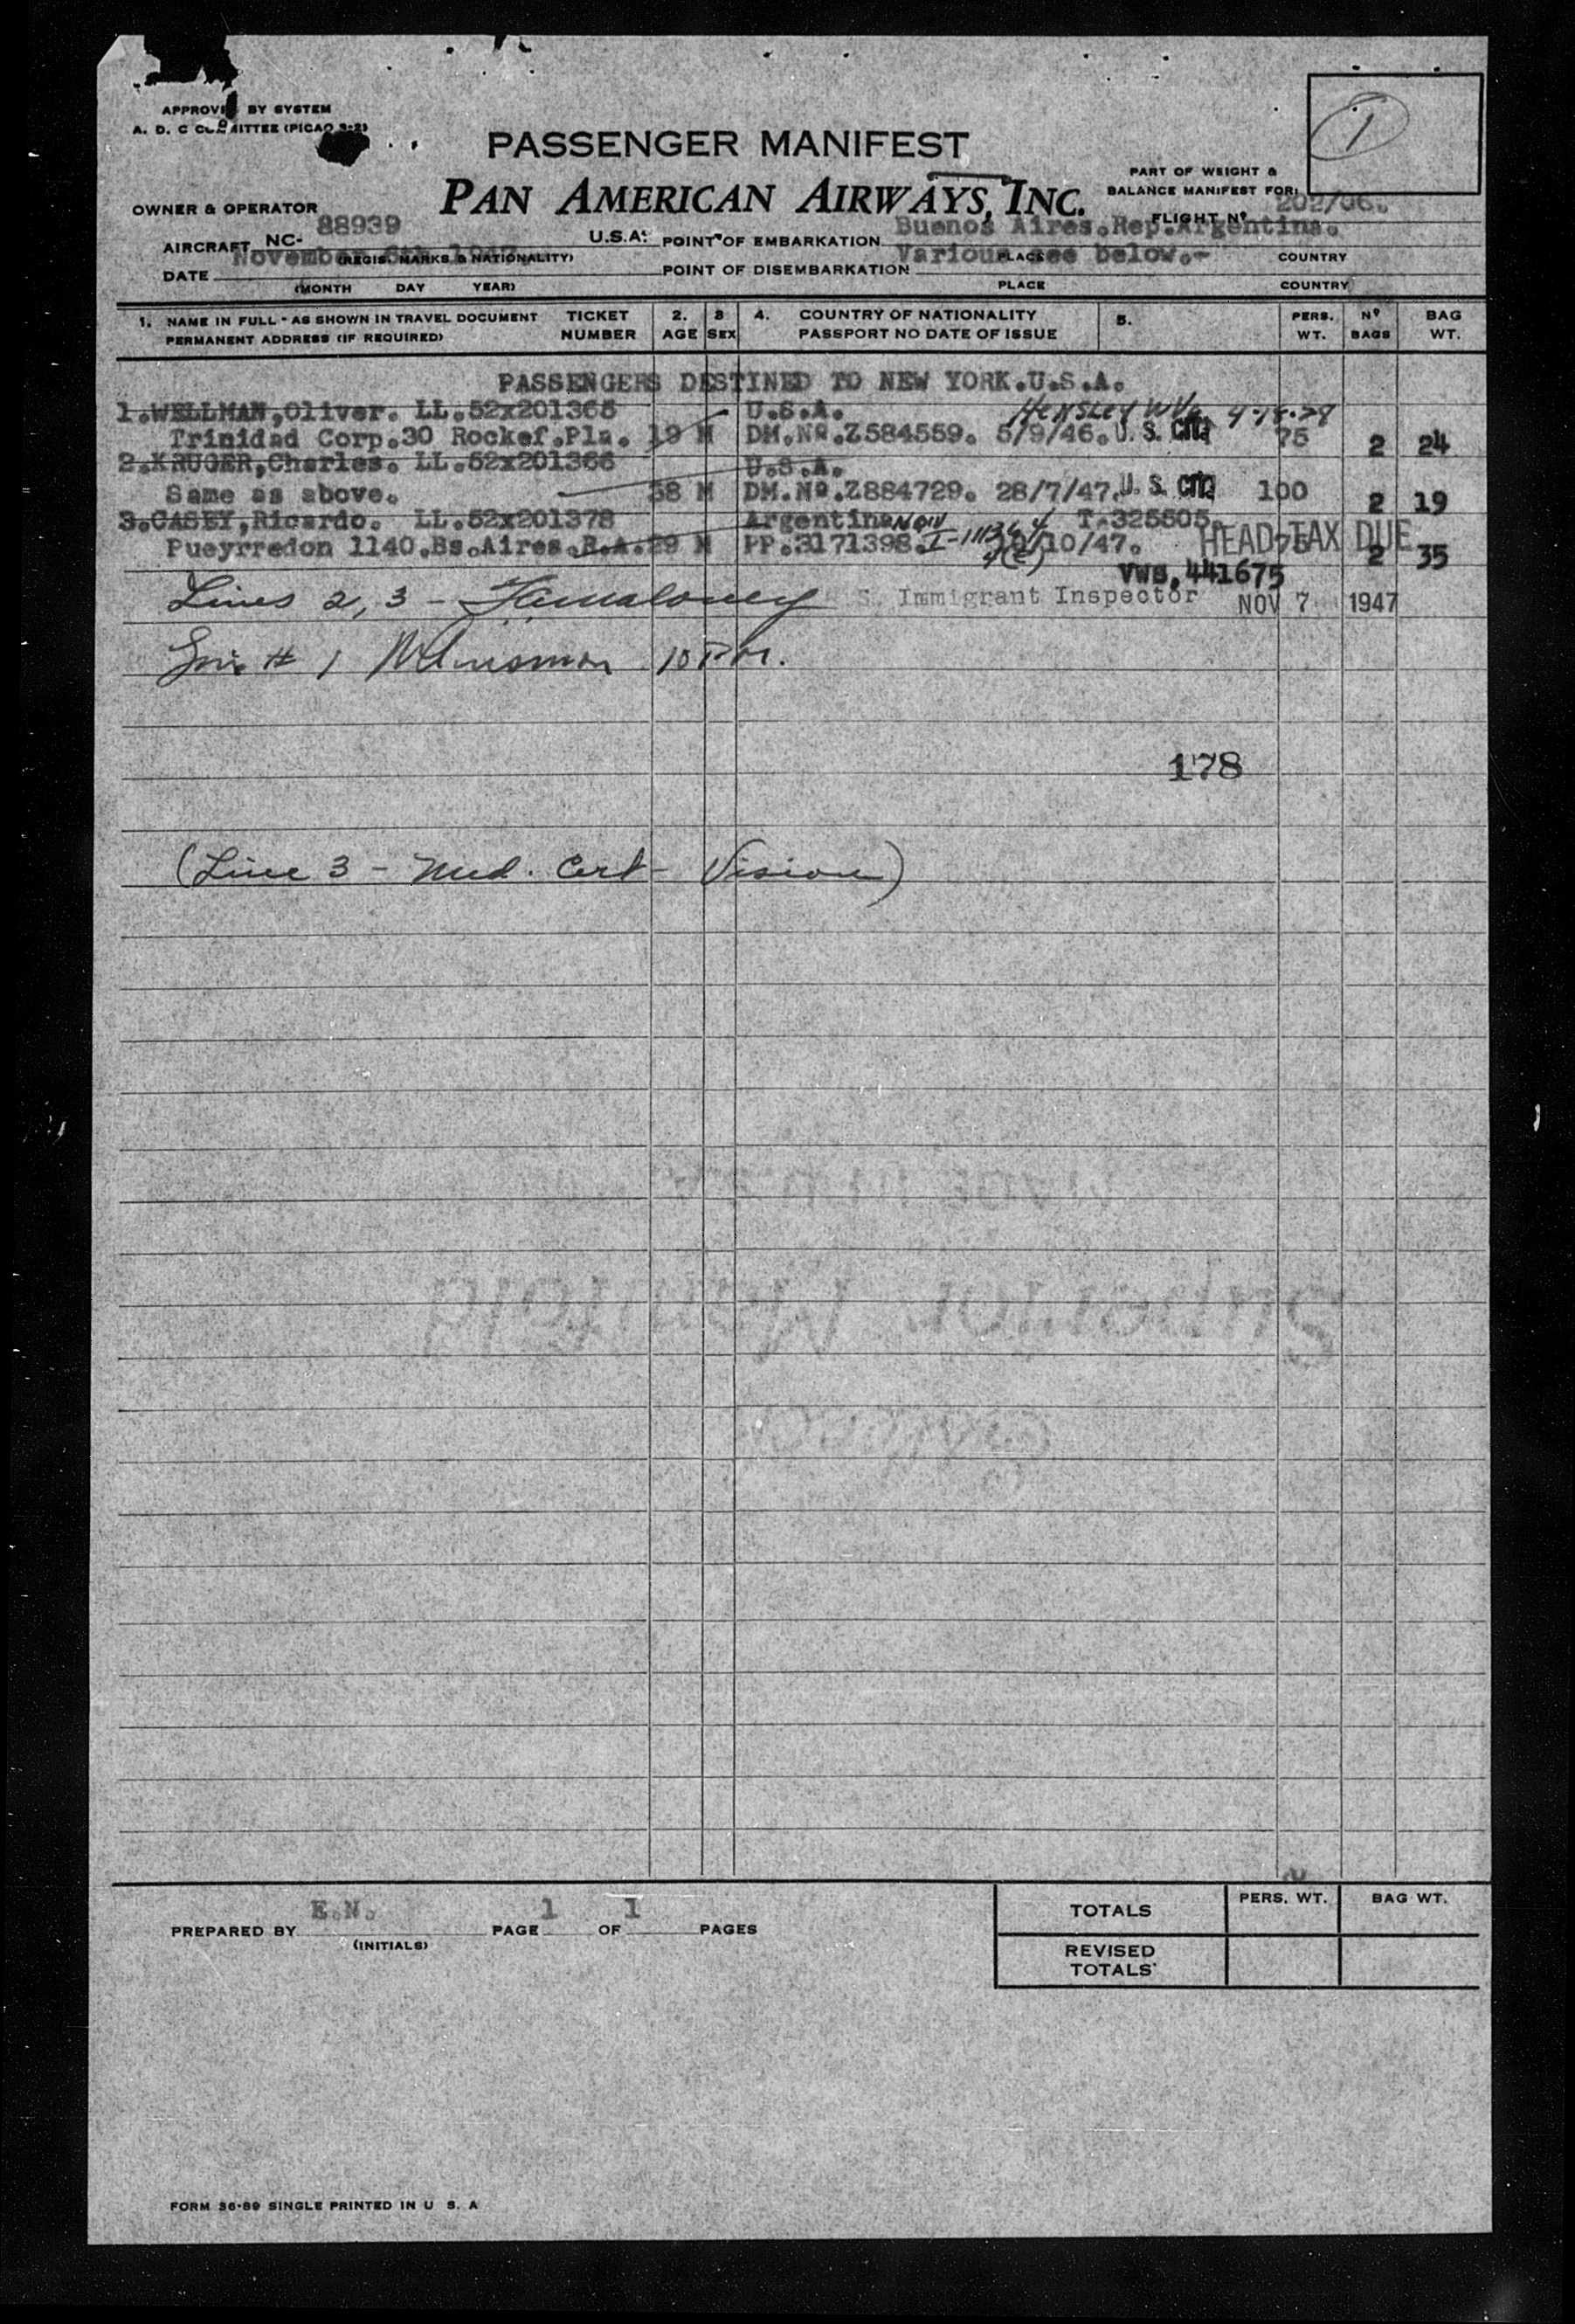 APPROVED BY SYSTEM
A. D. C COMMITTEE (PICAO 3-2)
1
PASSENGER MANIFEST
PAN AMERICAN AIRWAYS, INC.
PART OF WEIGHT &
BALANCE MANIFEST FOR:
FLIGHT Nº 202/06.
OWNER & OPERATOR
AIRCRAFT NC- 88939 U.S.A.
(REGIS. MARKS & NATIONALITY)
POINT OF EMBARKATION Buenos Aires.Rep.Argentina.
PLACE COUNTRY
DATE November 6th 1947
(MONTH DAY YEAR)
POINT OF DISEMBARKATION Various see below.-
PLACE COUNTRY
1. NAME IN FULL - AS SHOWN IN TRAVEL DOCUMENT TICKET 2. 3 4. COUNTRY OF NATIONALITY 5. PERS. Nº BAG
PERMANENT ADDRESS (IF REQUIRED) NUMBER AGE SEX PASSPORT NO DATE OF ISSUE WT. BAGS WT.
PASSENGERS DESTINED TO NEW YORK.U.S.A.
1.WELLMAN,Oliver. LL.52x201365 U.S.A. HENSLEY WVa
Trinidad Corp.30 Rockef.Pla. 19 M DM.Nº.Z584559. 5/9/46. U. S. CITZ 75 2 24
2.KRUGER,Charles. LL.52x201366 U.S.A.
Same as above. 38 M DM.Nº.Z884729. 28/7/47. U. S. CITZ 100 2 19
3.CASEY,Ricardo. LL.52x201378 Argentina T-325505.
Pueyrredon 1140.Bs.Aires.R.A. 29 M PP.3171398. /10/47. HEAD TAX DUE 75 2 35
VWS, 441675
Lines 2, 3 - S. Immigrant Inspector NOV 7 1947
# 1 10 P.M.
178
(Line 3 - Med. Cert - Vision)
MADE IN U.S.A.
Superior Manifold
PREPARED BY E.N. PAGE 1 OF 1 PAGES
(INITIALS)
TOTALS PERS. WT. BAG WT.
REVISED
TOTALS
FORM 36-89 SINGLE PRINTED IN U S. A